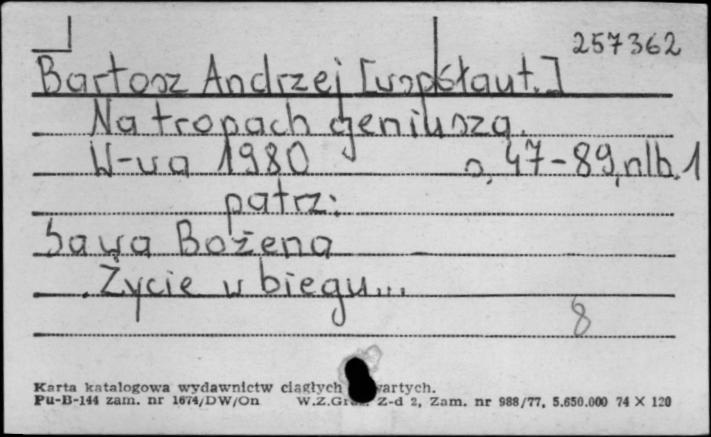 257362
Bartosz Andrzej [współaut.]
Na tropach geniusza.
W-wa 1980 s. 47-89, nlb. 1
patrz:
Sawa Bożena
Życie w biegu...
8
Karta katalogowa wydawnictw ciągłych
Pu-B-144 zam. nr 1674/DW/On W.Z.Graf. Z-d 2, Zam. nr 988/77, 5.650.000 74 X 120